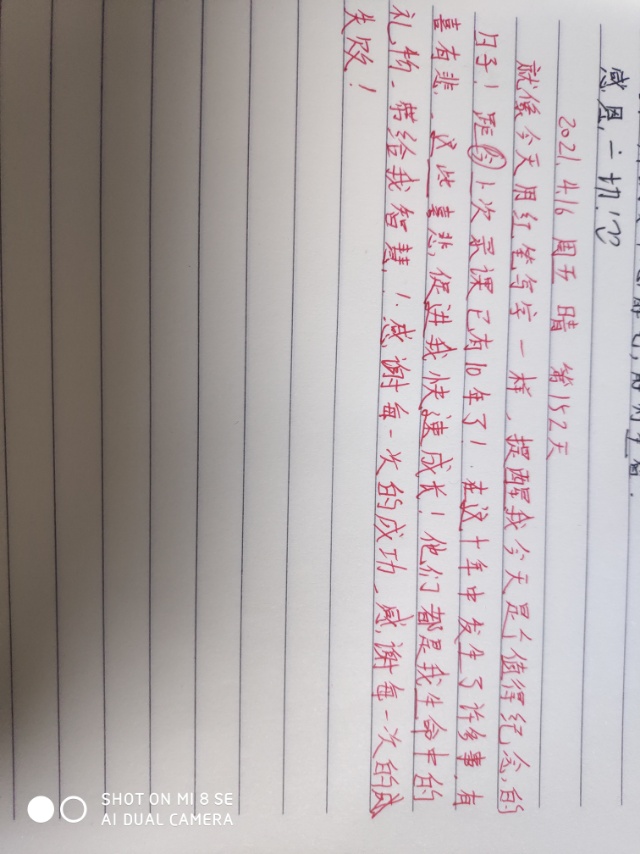 感恩,一切,心
2021.4.16 周五 晴 第152天
就像今天用红笔写字一样,提醒我今天是个值得纪念的
日子!距今上次录课已有10年了!在这十年中发生了许多事,有
喜有悲,这些喜悲,促进我快速成长!他们都是我生命中的
礼物,带给我智慧,!感谢每一次的成功,感谢每一次的成
失败!
SHOT ON MI 8 SE
AI DUAL CAMERA